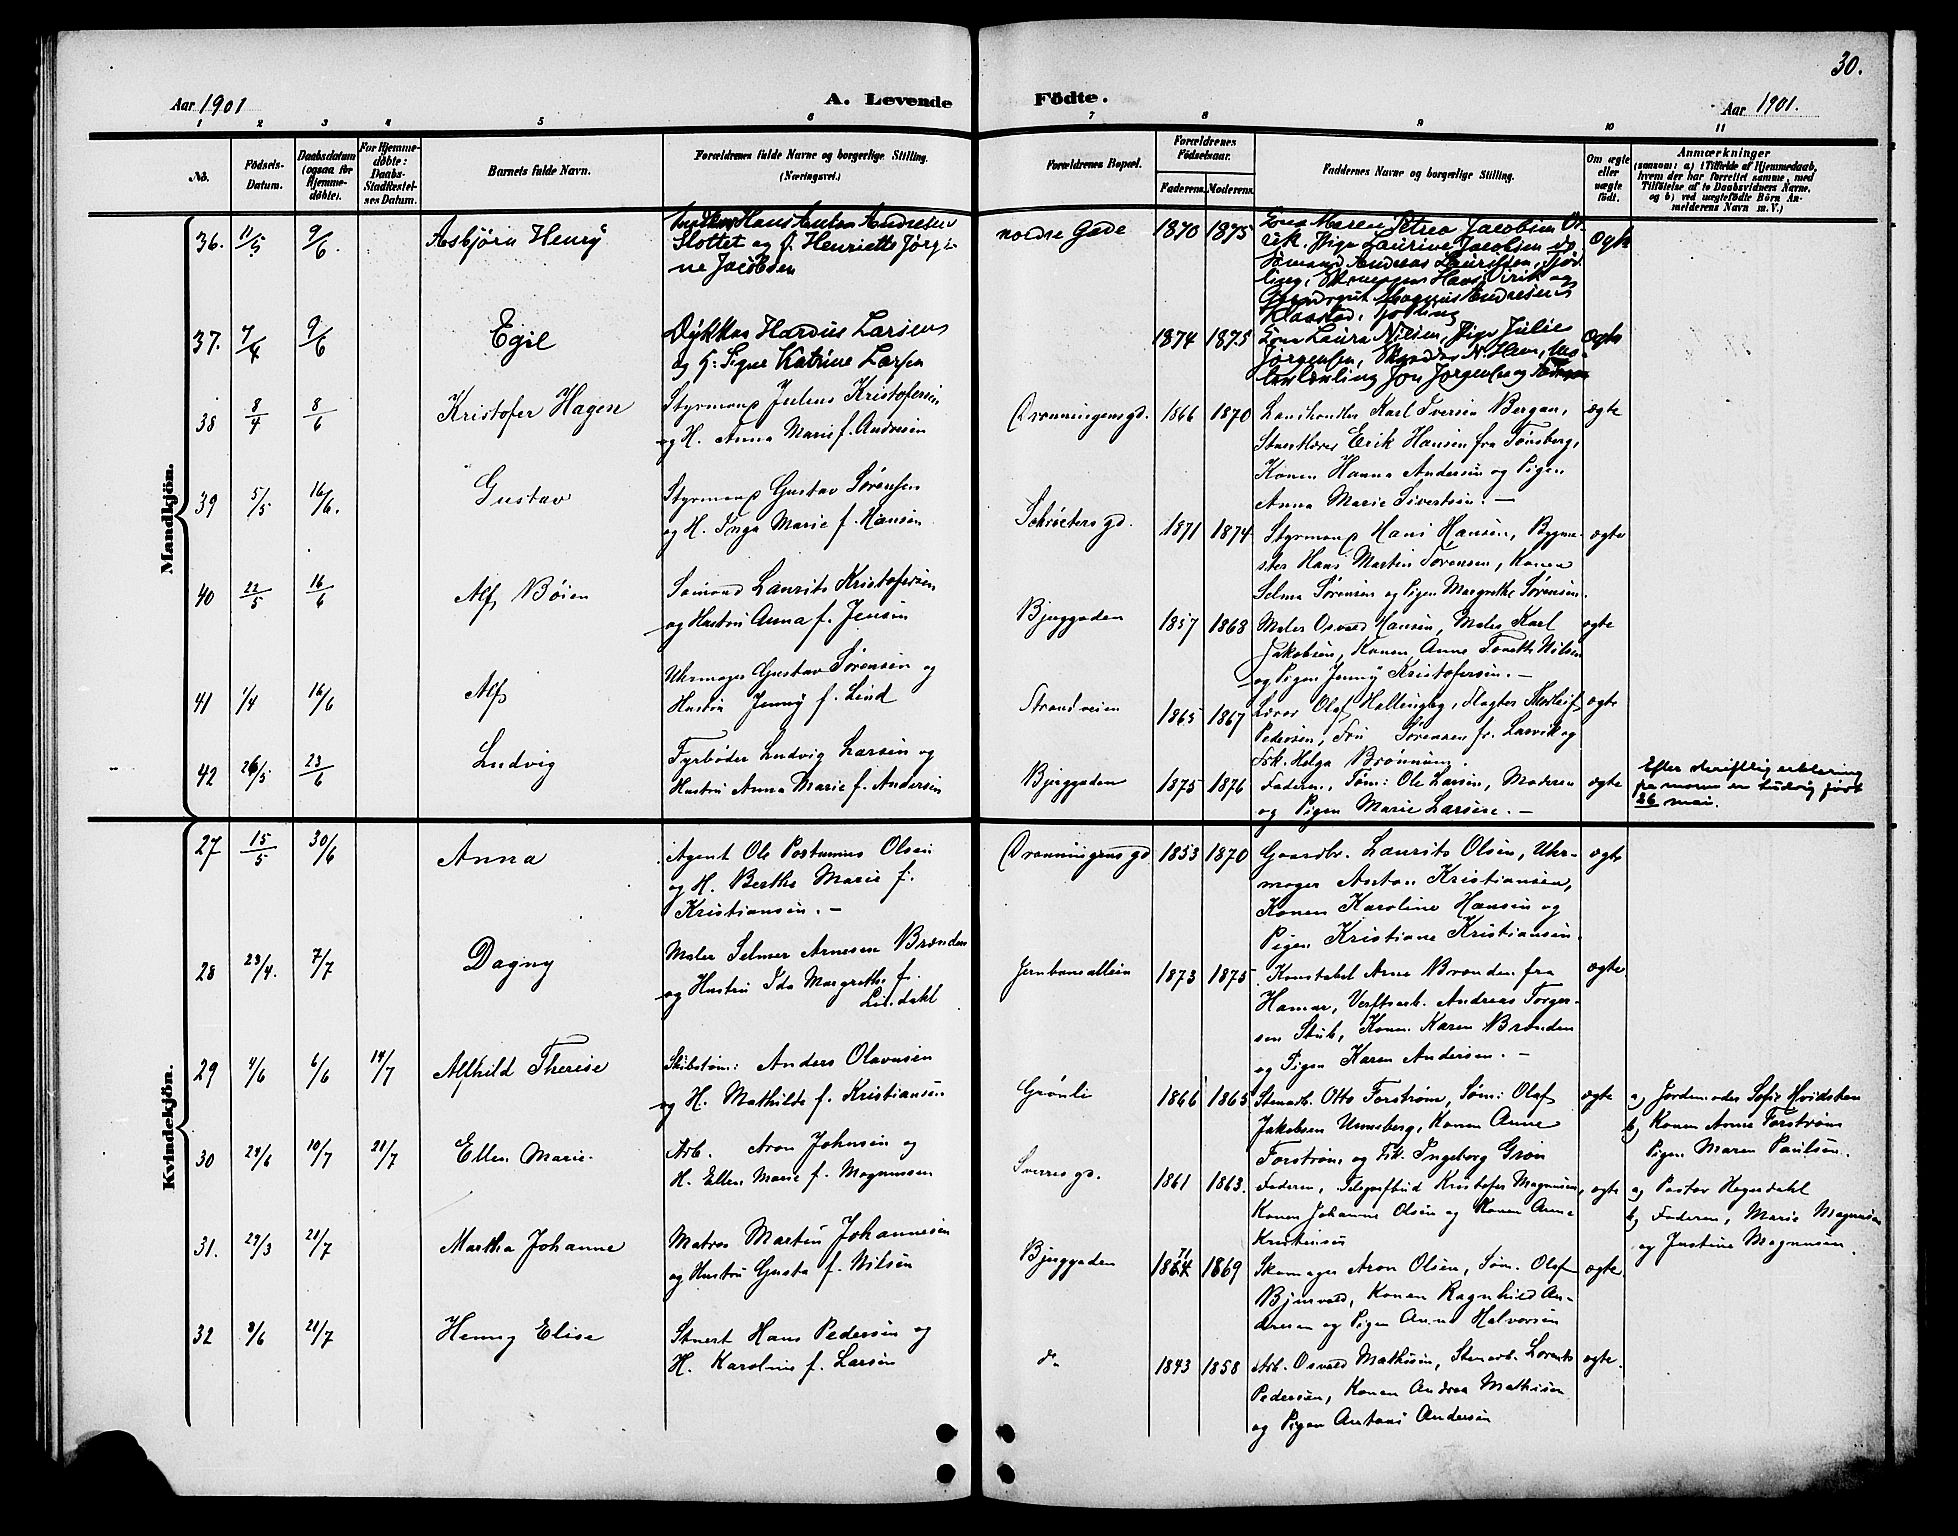 30.
Aar 1901
A. Levende
Födte.
Aar 1901.
1 2 3 4 5 6 7 8 9 10 11
No.
Födsels-
Datum.
Daabsdatum
(ogsaa for
Hjemme-
döbte).
For Hjemme-
döbte:
Daabs-
Stadfæstel-
ses Datum.
Barnets fulde Navn.
Forældrenes fulde Navne og borgerlige Stilling.
(Næringsvei.)
Forældrenes Bopæl.
Forældrenes
Födselsaar.
Faderens. Moderens.
Faddernes Navne og borgerlige Stilling.
Om ægte
eller
uægte
født.
Anmærkninger
(saasom: a) i Tilfælde af Hjemmedaab,
hvem der har forrettet samme, med
Tilføielse af to Daabsvidners Navne.
og b) ved uægtefødte Börn An-
melderens Navn m. V.)
Mandkjön.
36. 11/5 9/6 Asbjörn Henry
Hans Anton Andresen
Slottet og H. Henriette Jörgi-
ne Jacobsen
nordre Gade 1870 1875
Maren Petrea Jacobsen
Pige Laurine Jacobsen
Sömand Andreas Lauritsen,
Magnus Andresen
Klaastad, Tjölling
37. 7/4 9/6 Egil
Dykker Hardus Larsen
og H. Signe Katrine Larsen
1874 1875
Kone Laura Nilsen, Pige Julie
Jörgensen,
38 8/4 8/6 Kristofer Hagen
Styrmand Julius Kristofersen
og H. Anna Marie f. Andersen
Dronningensgd. 1866 1870
Karl Iversen Bergan,
Erik Hansen fra Tønsberg,
Konen Hanna Andersen og Pigen
Anna Marie Sivertsen. —
ægte
39 5/5 16/6. Gustav
Styrmand Gustav Sørensen
og H. Inga Marie f. Hansen
Schrøetersgd. 1871 1874
Styrmand Hans Hansen, Bygme-
ster Hans Martin Sørensen, Konen
Selma Sørensen og Pigen Margrethe Sørensen.
ægte
40 22/5 16/6 Alf Böien
Sømand Laurits Kristofersen
og Hustru Anna f. Jensen
Bjuggaden 1857 1868
Maler Osvald Hansen, Maler Karl
Jakobsen, Konen Anne Nilsen
og Pigen Jenny Kristofersen. —
ægte
41 1/4 16/6 Alf
Uhrmager Gustav Sørensen og
Hustru Jenny f. Lind
Strandveien 1865 1867
Lærer Olaf Hallingby, Slagter
Pedersen, Fru Sørensen fr. Larvik og
Frk. Helga Brønnum.
ægte
42 26/5 23/6 Ludvig
Fyrbøder Ludvig Larsen og
Hustru Anna Marie f. Andersen
Bjuggaden 1875 1876
Faderen, Tøm: Ole Larsen, Moderen
og Pigen Marie Larsen. —
ægte
Efter skriftlig erklæring
fra moren er Ludvig født
26 mai.
Kvindekjön.
27 15/5 30/6 Anna
Agent Ole Postumius Olsen
og H. Berthe Marie f.
Kristiansen. —
Dronningensgd 1853 1870
Gaardbr. Laurits Olsen, Uhr-
mager Anton Kristiansen,
Konen Karoline Hansen og
Pigen Kristiane Kristiansen.
ægte
28 23/4. 7/7 Dagny
Maler Selmer Arnesen Brænden
og Hustru Ida Margrethe f.
Lindahl
Jernbanealleen 1873 1875
Konstabel Arne Brænden fra
Hamar, Verftsarb. Andreas Torger-
sen Stub, Konen Karen Brænden
og Pigen Karen Andersen. —
ægte
29 4/6 6/6 14/7 Alfhild Therese
Skibstøm: Anders Olavesen
og H. Mathilde f. Kristiansen
Grønli 1866 1865
Stenarb. Otto Forstrøm, Søm: Olaf
Jakobsen Unneberg, Konen Anne
Forstrøm og Frk. Ingeborg Grøn
ægte
a) Jordemoder Sofie Hvidsten
b) Konen Anne Forstrøm
Pigen Maren Paulsen.
30 24/6 10/7 21/7 Ellen Marie.
Arb. Aron Johnsen og
H. Ellen Marie f. Magnussen
Sverresgd. 1861 1863.
Faderen, Telegrafbud Kristofer Magnussen,
Konen Johanne Olsen og Konen Anne
Kristensen
ægte
a) Pastor Hegerdahl
b) Faderen, Marie Magnussen
og Justine Magnussen.
31. 29/3 21/7 Martha Johanne
Matros Martin Johannesen
og Hustru Gusta f. Nilsen
Bjuggaden 1864 71 1869
Skomager Aron Olsen, Søm. Olaf
Bjørvald, Konen Ragnhild An-
dresen og Pigen Anna Halvorsen
ægte.
32 8/6 21/7 Henny Elise
Stuert Hans Pedersen og
H. Karoline f. Larsen
do 1843 1858
Arb. Osvald Mathisen, Stenarb. Lorents
Pedersen, Konen Andrea Mathisen
og Pigen Antoni Andersen
ægte.